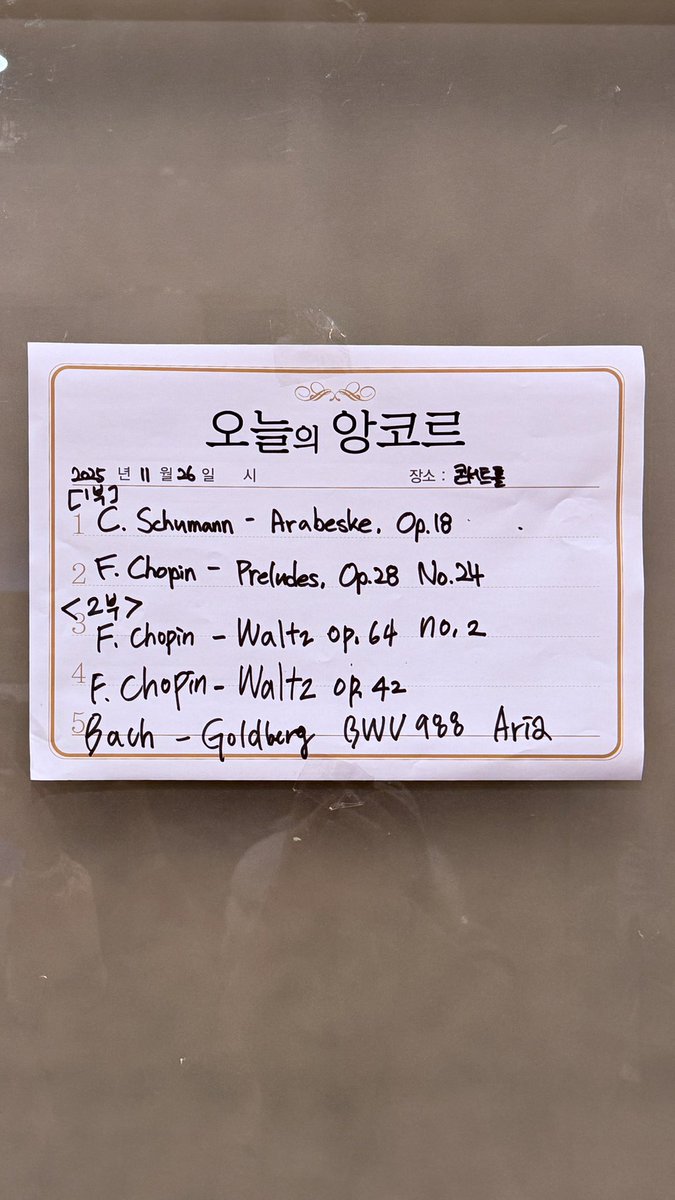 오늘의 앙코르
2025 년 11 월 26 일 시 장소 : 콘서트홀
[1부]
1 C. Schumann - Arabeske. Op.18
2 F. Chopin - Preludes. Op.28 No.24
<2부>
3 F. Chopin - Waltz op. 64 no. 2
4 F. Chopin - Waltz op. 42
5 Bach - Goldberg BWV 988 Aria